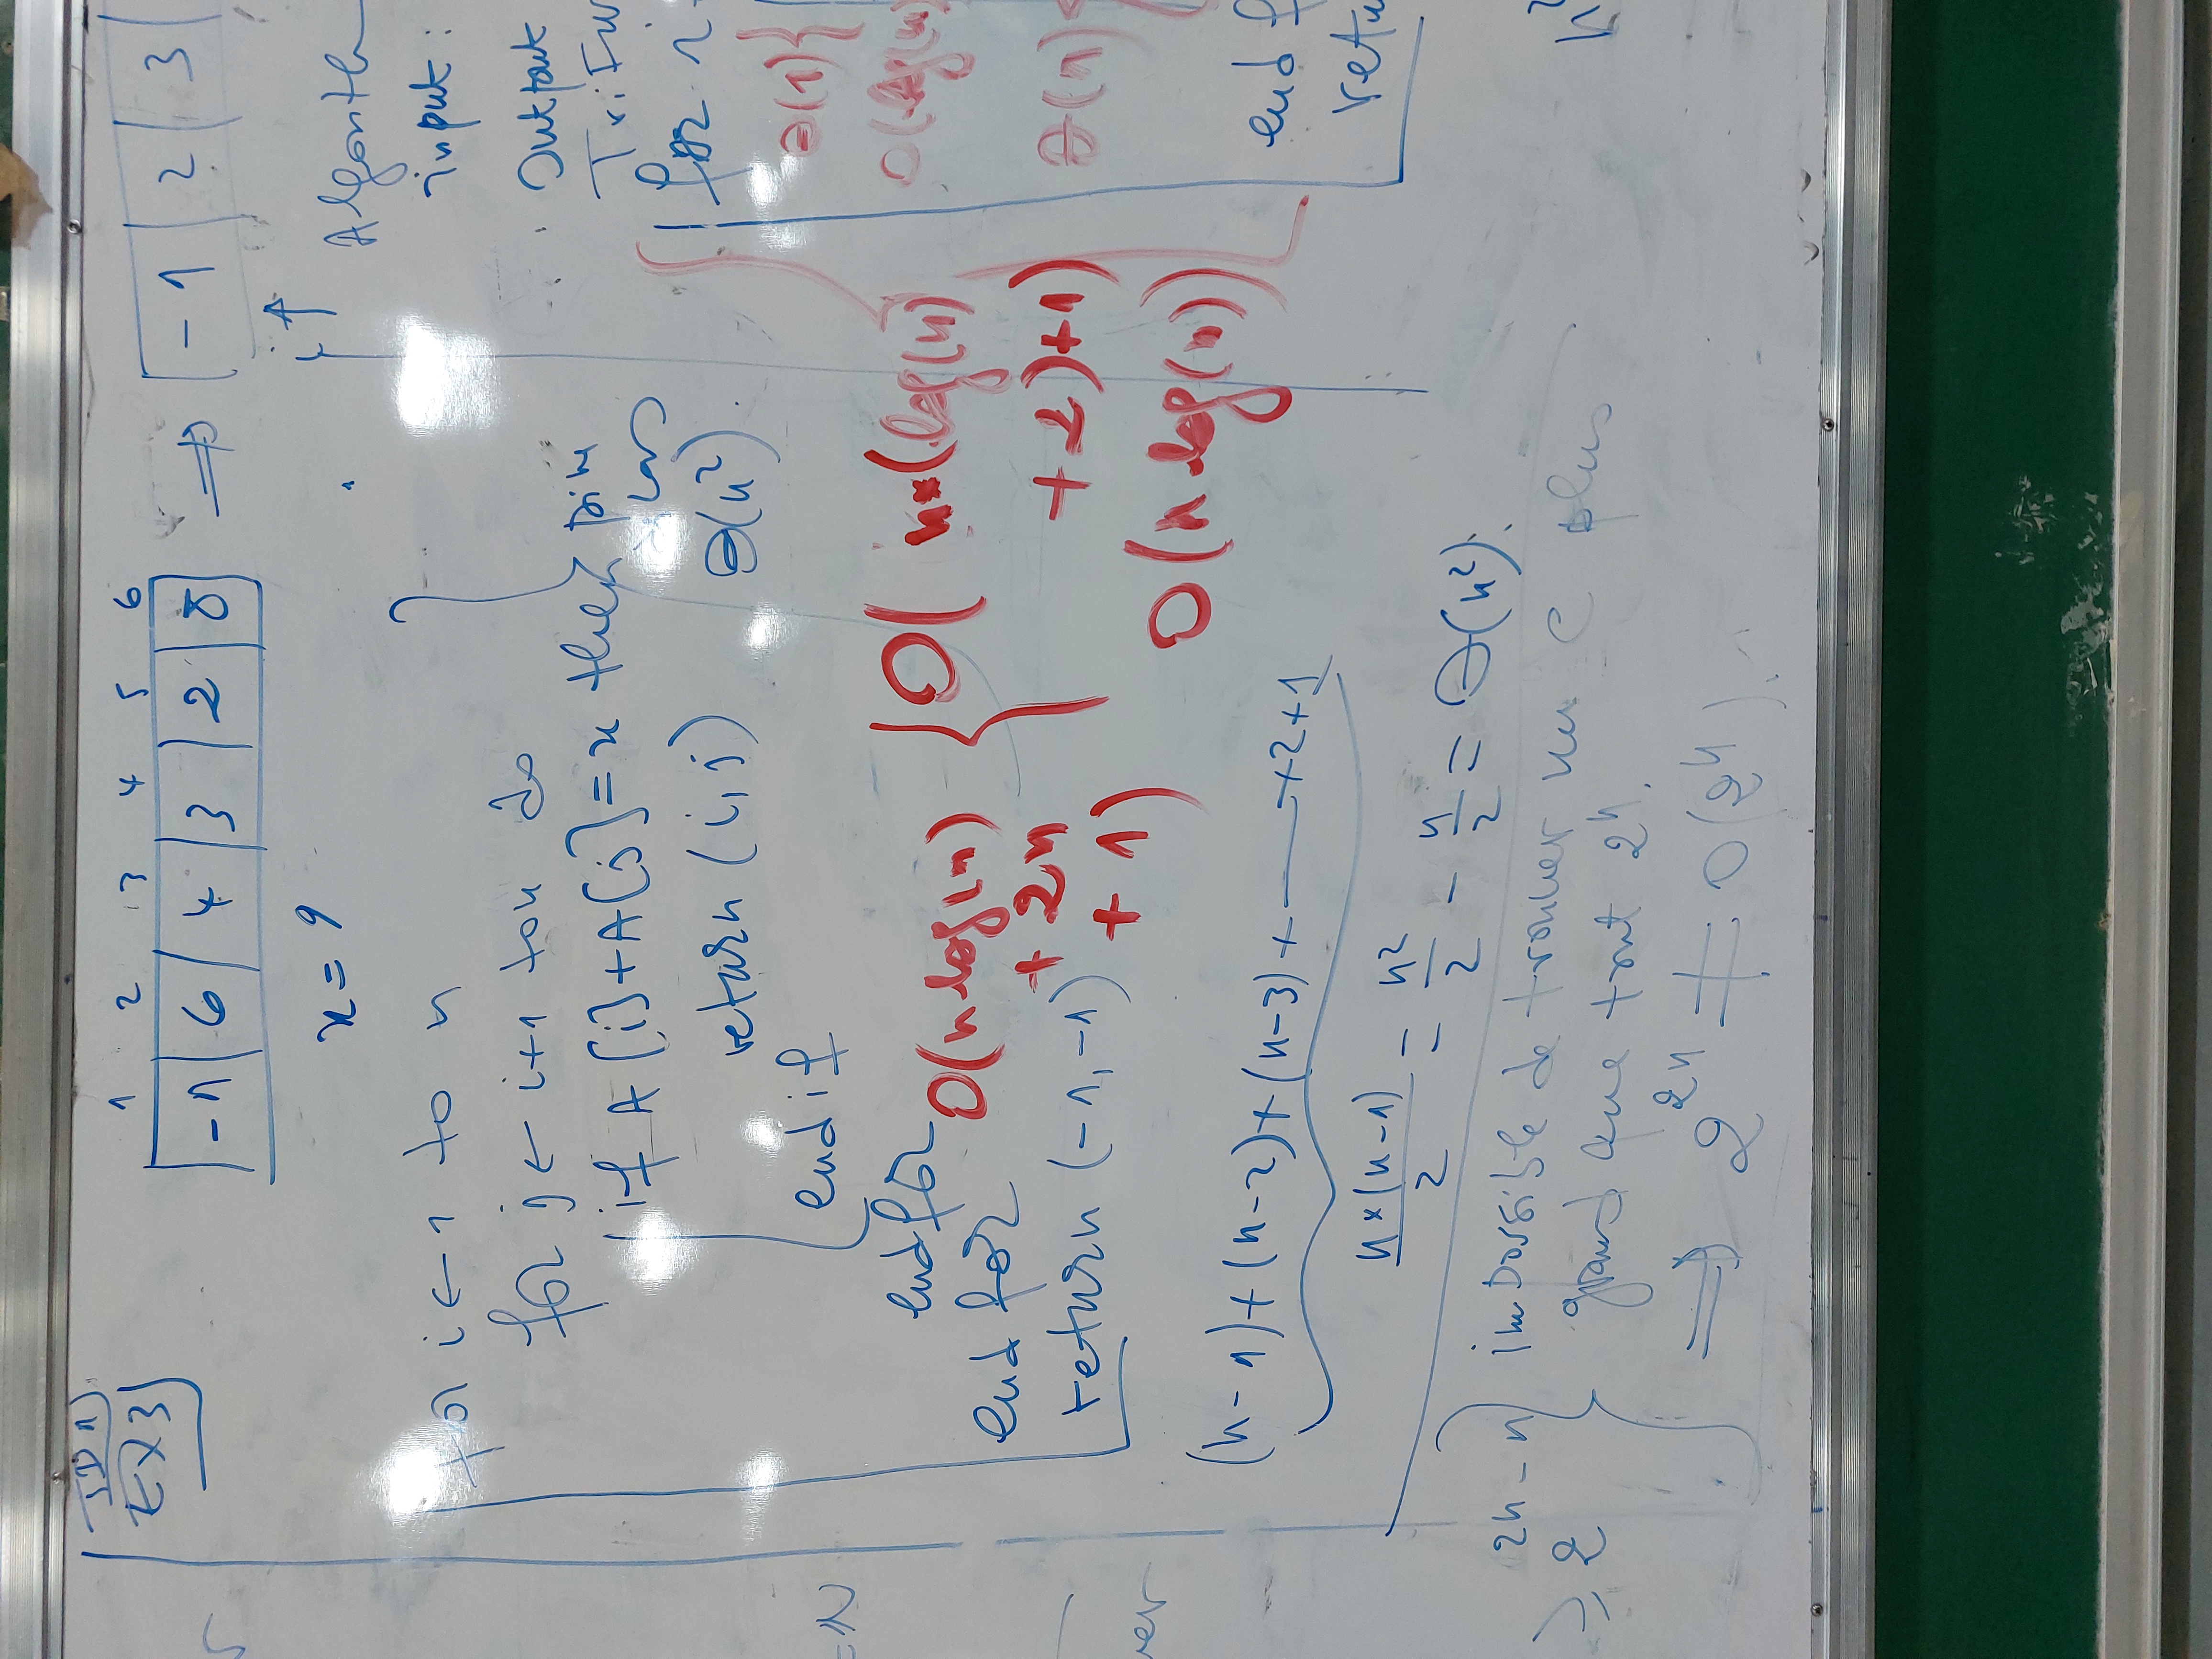 TD1
EX3
1 2 3 4 5 6
-1 6 4 3 2 8 ⇒ -1 2 3
x = 9
i ↑
for i ← 1 to n
for j ← i+1 to n do
if A[i]+A[j] = x then
return (i,j)
end if
end for
end for
return (-1,-1)
pire
cas
Θ(n²).
O(n log(n)
+ 2n
+ 1)
O( n*(log(n)
+2)+1)
O(n log(n))
(n-1)+(n-2)+(n-3)+ — +2+1
n×(n-1)/2 = n²/2 - n/2 = Θ(n²).
2n-n
≥ 2
impossible de trouver un C plus
grand que tout 2ⁿ.
⇒ 2²ⁿ ≠ O(2ⁿ).
Algorith
input:
Output
for i
Θ(1) {
O(log(n)
Θ(1)
end f
retu
n²
=N
ver